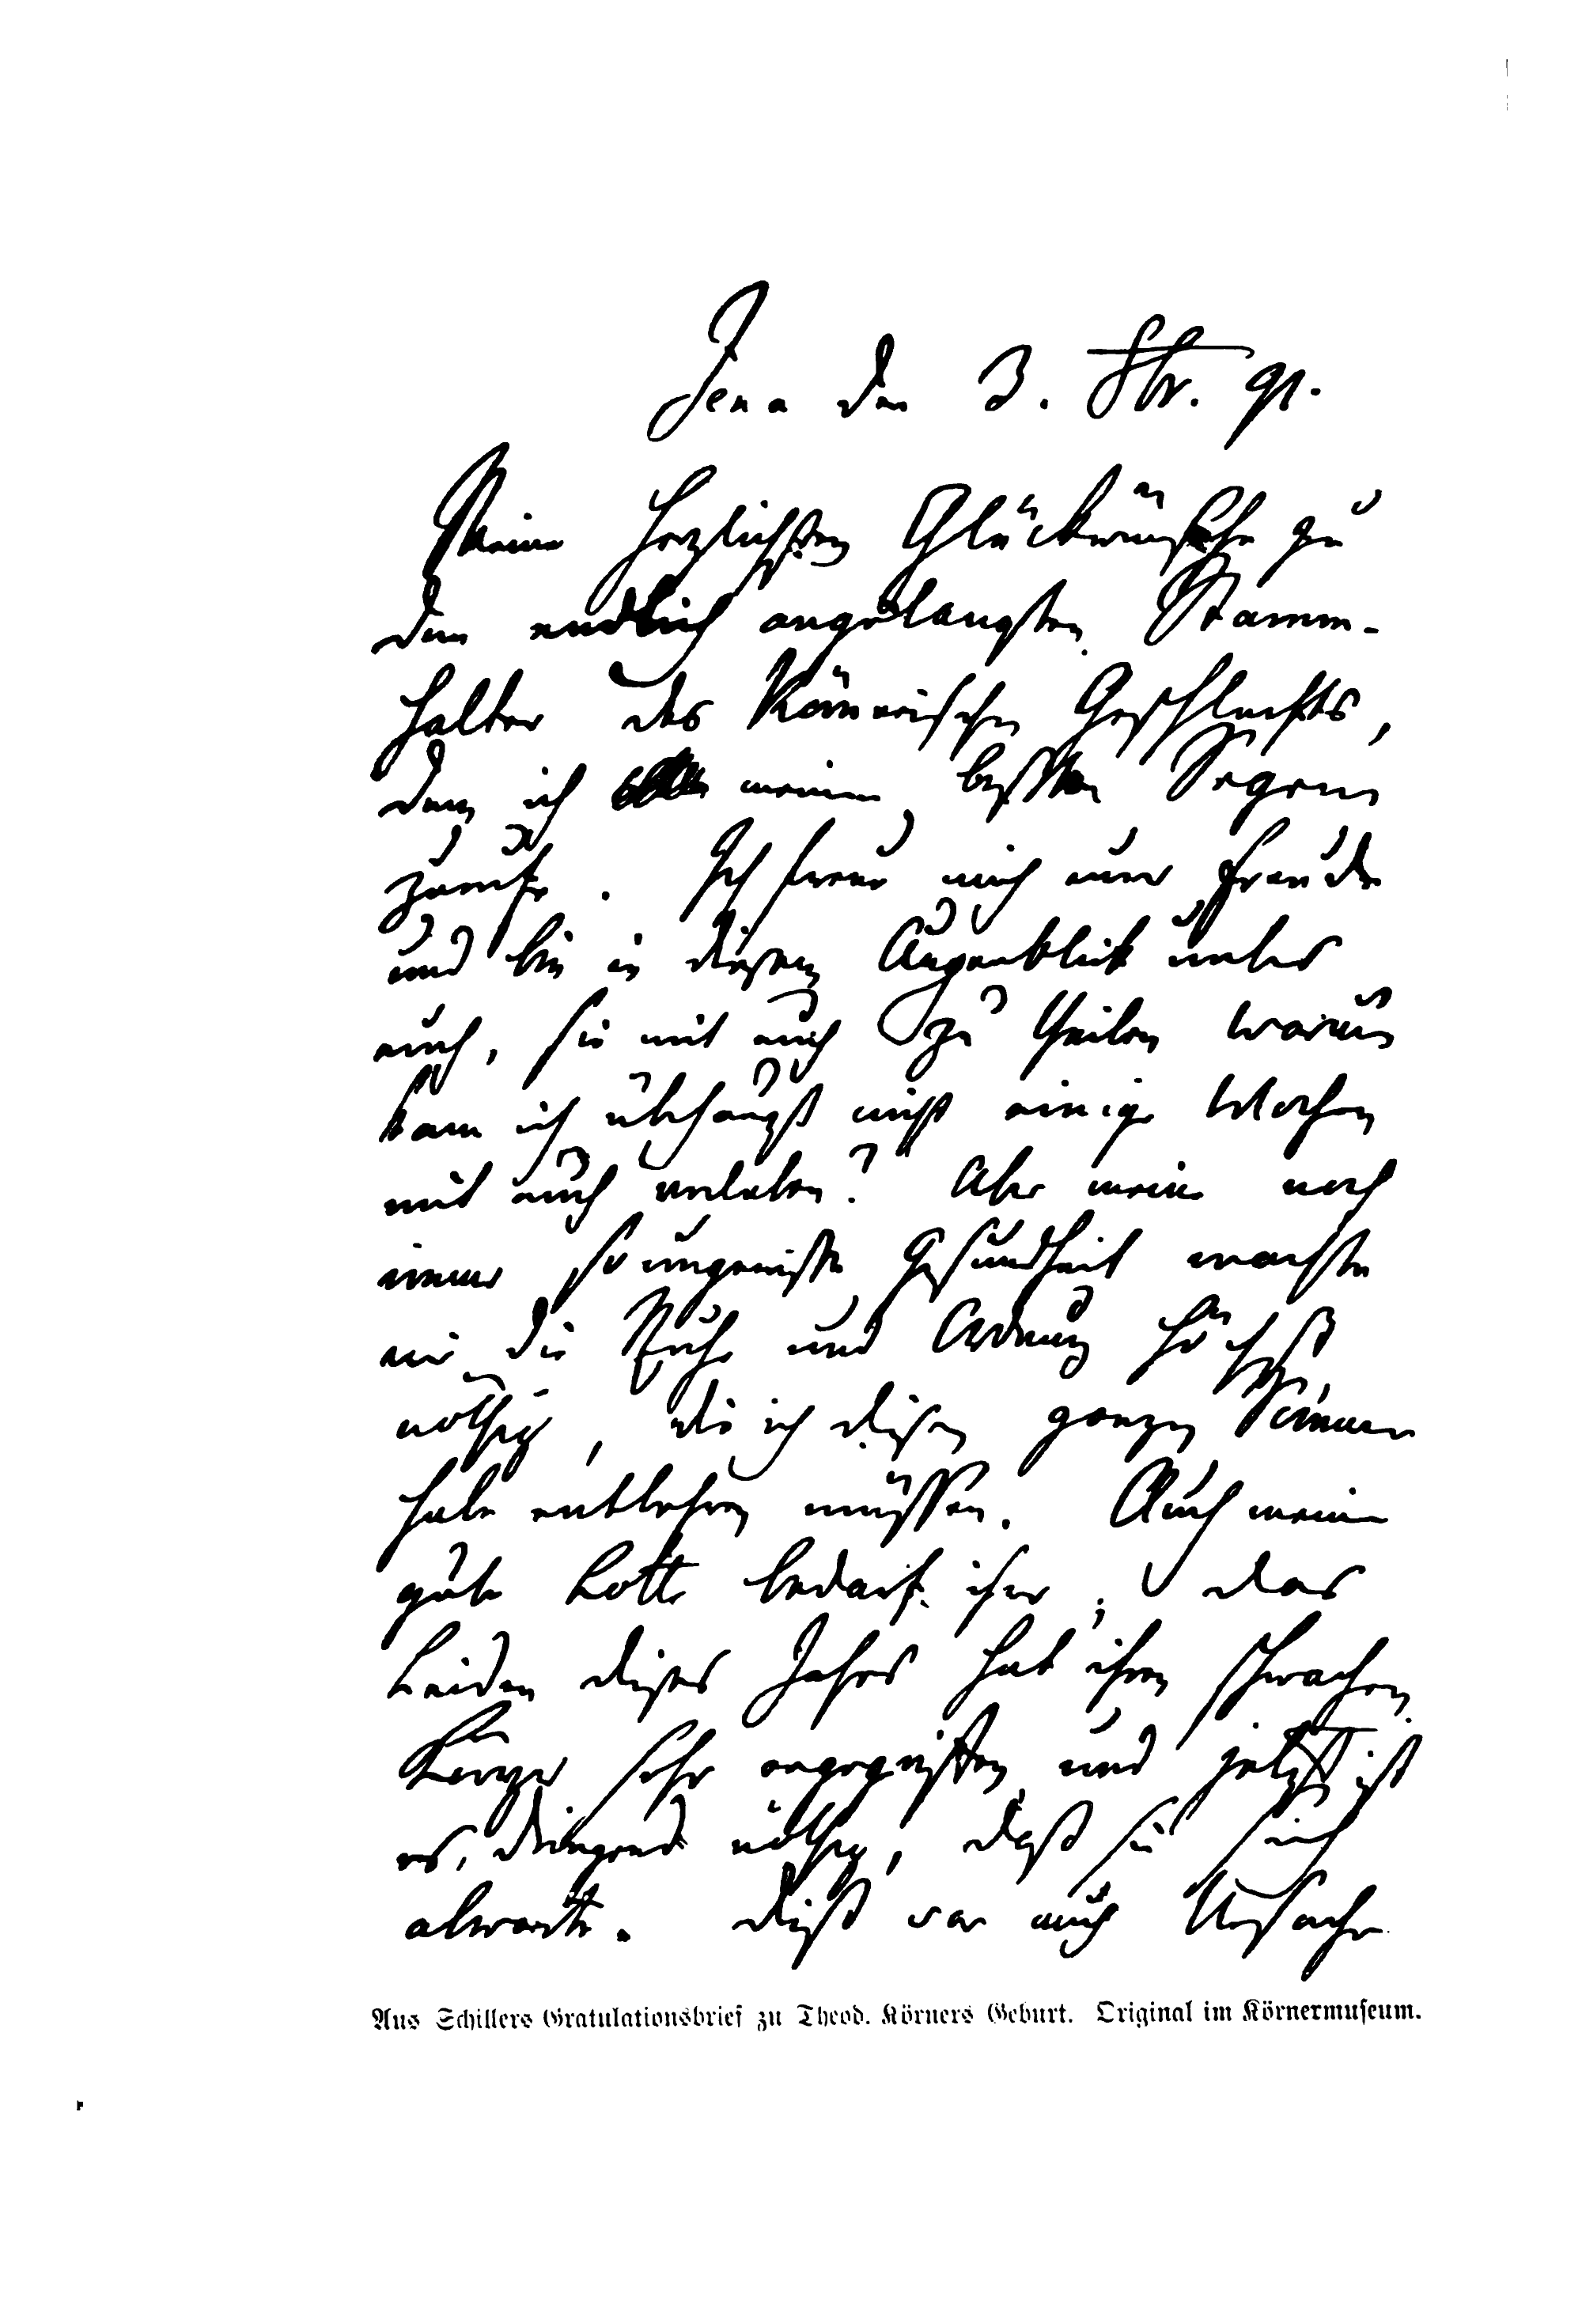 Jena den 3. 8br. 91.
Meine herzlichsten Glückwünsche zu
dem endlich angelangten Stamm-
halter des Körnerischen Geschlechts,
dem ich meinen besten Segen
zurufe. Ich freue mich eurer Freude
und bin in diesem Augenblick unter
euch, sie mit euch zu theilen. Warum
kann ich überhaupt nicht einige Wochen
mit euch verleben? Aber meine noch
immer so ungewisse Gesundheit machte
mir die Ruhe und Ordnung höchst
nöthig, die ich diesen ganzen Sommer
habe entbehren müssen. Auch meine
gute Lotte bedarf ihrer; das
Leiden dieses Jahres hat ihren schwachen
Körper sehr angegriffen und jetzt ist
es dringend nöthig, daß sie sich
abwarte. Dieß war auch Ursache
Aus Schillers Gratulationsbrief zu Theod. Körners Geburt. Original im Körnermuseum.